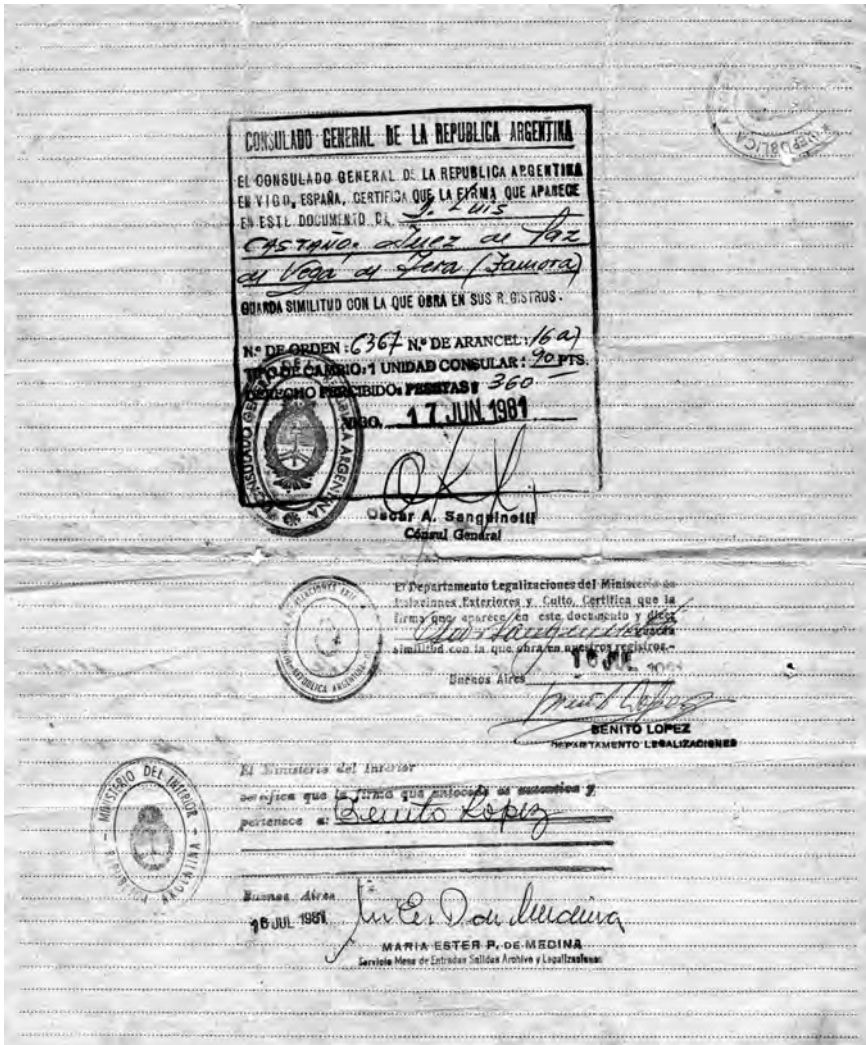 REPUBLICA A
CONSULADO GENERAL DE LA REPUBLICA ARGENTINA
EL CONSULADO GENERAL DE LA REPUBLICA ARGENTINA
EN VIGO, ESPAÑA, CERTIFICA QUE LA FIRMA QUE APARECE
EN ESTE DOCUMENTO DE J. Luis
CASTAÑO. Juez de Paz
de Vega de Tera (Zamora)
GUARDA SIMILITUD CON LA QUE OBRA EN SUS REGISTROS.
N.º DE ORDEN: 6367 N.º DE ARANCEL: 16 a)
TIPO DE CAMBIO: 1 UNIDAD CONSULAR: 90 PTS.
DERECHO PERCIBIDO: PESETAS: 360
VIGO, 17 JUN. 1981
CONSULADO GENERAL DE LA REPUBLICA ARGENTINA
Oscar A. Sanguinetti
Cónsul General
El Departamento Legalizaciones del Ministerio de
Relaciones Exteriores y Culto, Certifica que la
firma que aparece en este documento y dice
guarda
similitud con la que obra en nuestros registros.-
REPUBLICA ARGENTINA
16 JUL 1981
Buenos Aires
BENITO LOPEZ
DEPARTAMENTO LEGALIZACIONES
El Ministerio del Interior
certifica que la firma que antecede es autentica y
pertenece a: Benito Lopez
MINISTERIO DEL INTERIOR
REPUBLICA ARGENTINA
Buenos Aires
16 JUL 1981
MARIA ESTER P. DE MEDINA
Servicio Mesa de Entradas Salidas Archivo y Legalizaciones